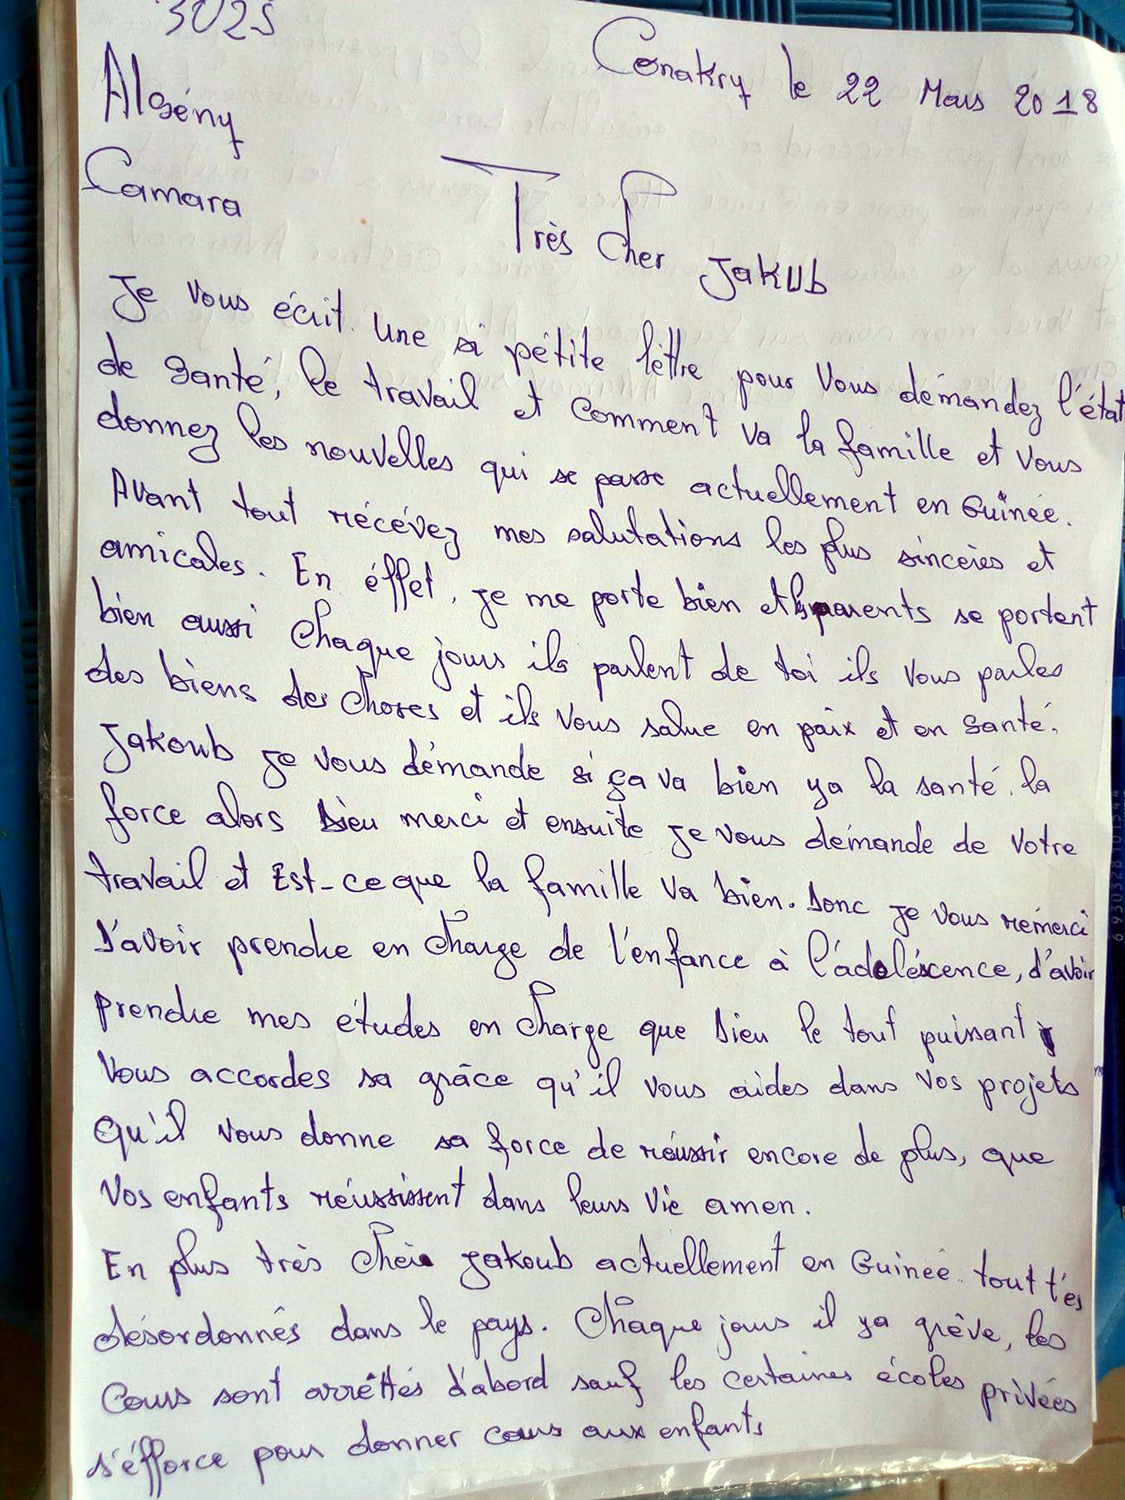 3025
Conakry le 22 Mars 2018
Algény
Camara
Très Cher Jakub
Je vous écrit une si pétite léttre pour vous démandez l'état
de santé, le travail et comment va la famille et vous
donnez les nouvelles qui se passe actuellement en Guinée.
Avant tout récévez mes salutations les plus sincères et
amicales. En éffet, je me porte bien et parents se portent
bien aussi chaque jours ils parlent de toi ils vous parles
des biens des choses et ils vous salue en paix et en santé.
Jakoub je vous démande si ça va bien ya la santé la
force alors Dieu merci et ensuite je vous démande de votre
travail et Est-ce que la famille va bien. Donc je vous rémerci
D'avoir prendre en charge de l'enfance à l'adoléscence, d'avoir
prendre mes études en charge que Dieu le tout puissant
Vous accordes sa grâce qu'il vous aides dans vos projets
Qu'il vous donne sa force de réussir encore de plus, que
Vos enfants réussissent dans leurs vie amen.
En plus très chèr Jakoub actuellement en Guinée tout t'es
désordonnés dans le pays. Chaque jours il ya grève, les
Cours sont arrêttés d'abord sauf les certaines écoles privées
s'éfforce pour donner cours aux enfants
6930328101544